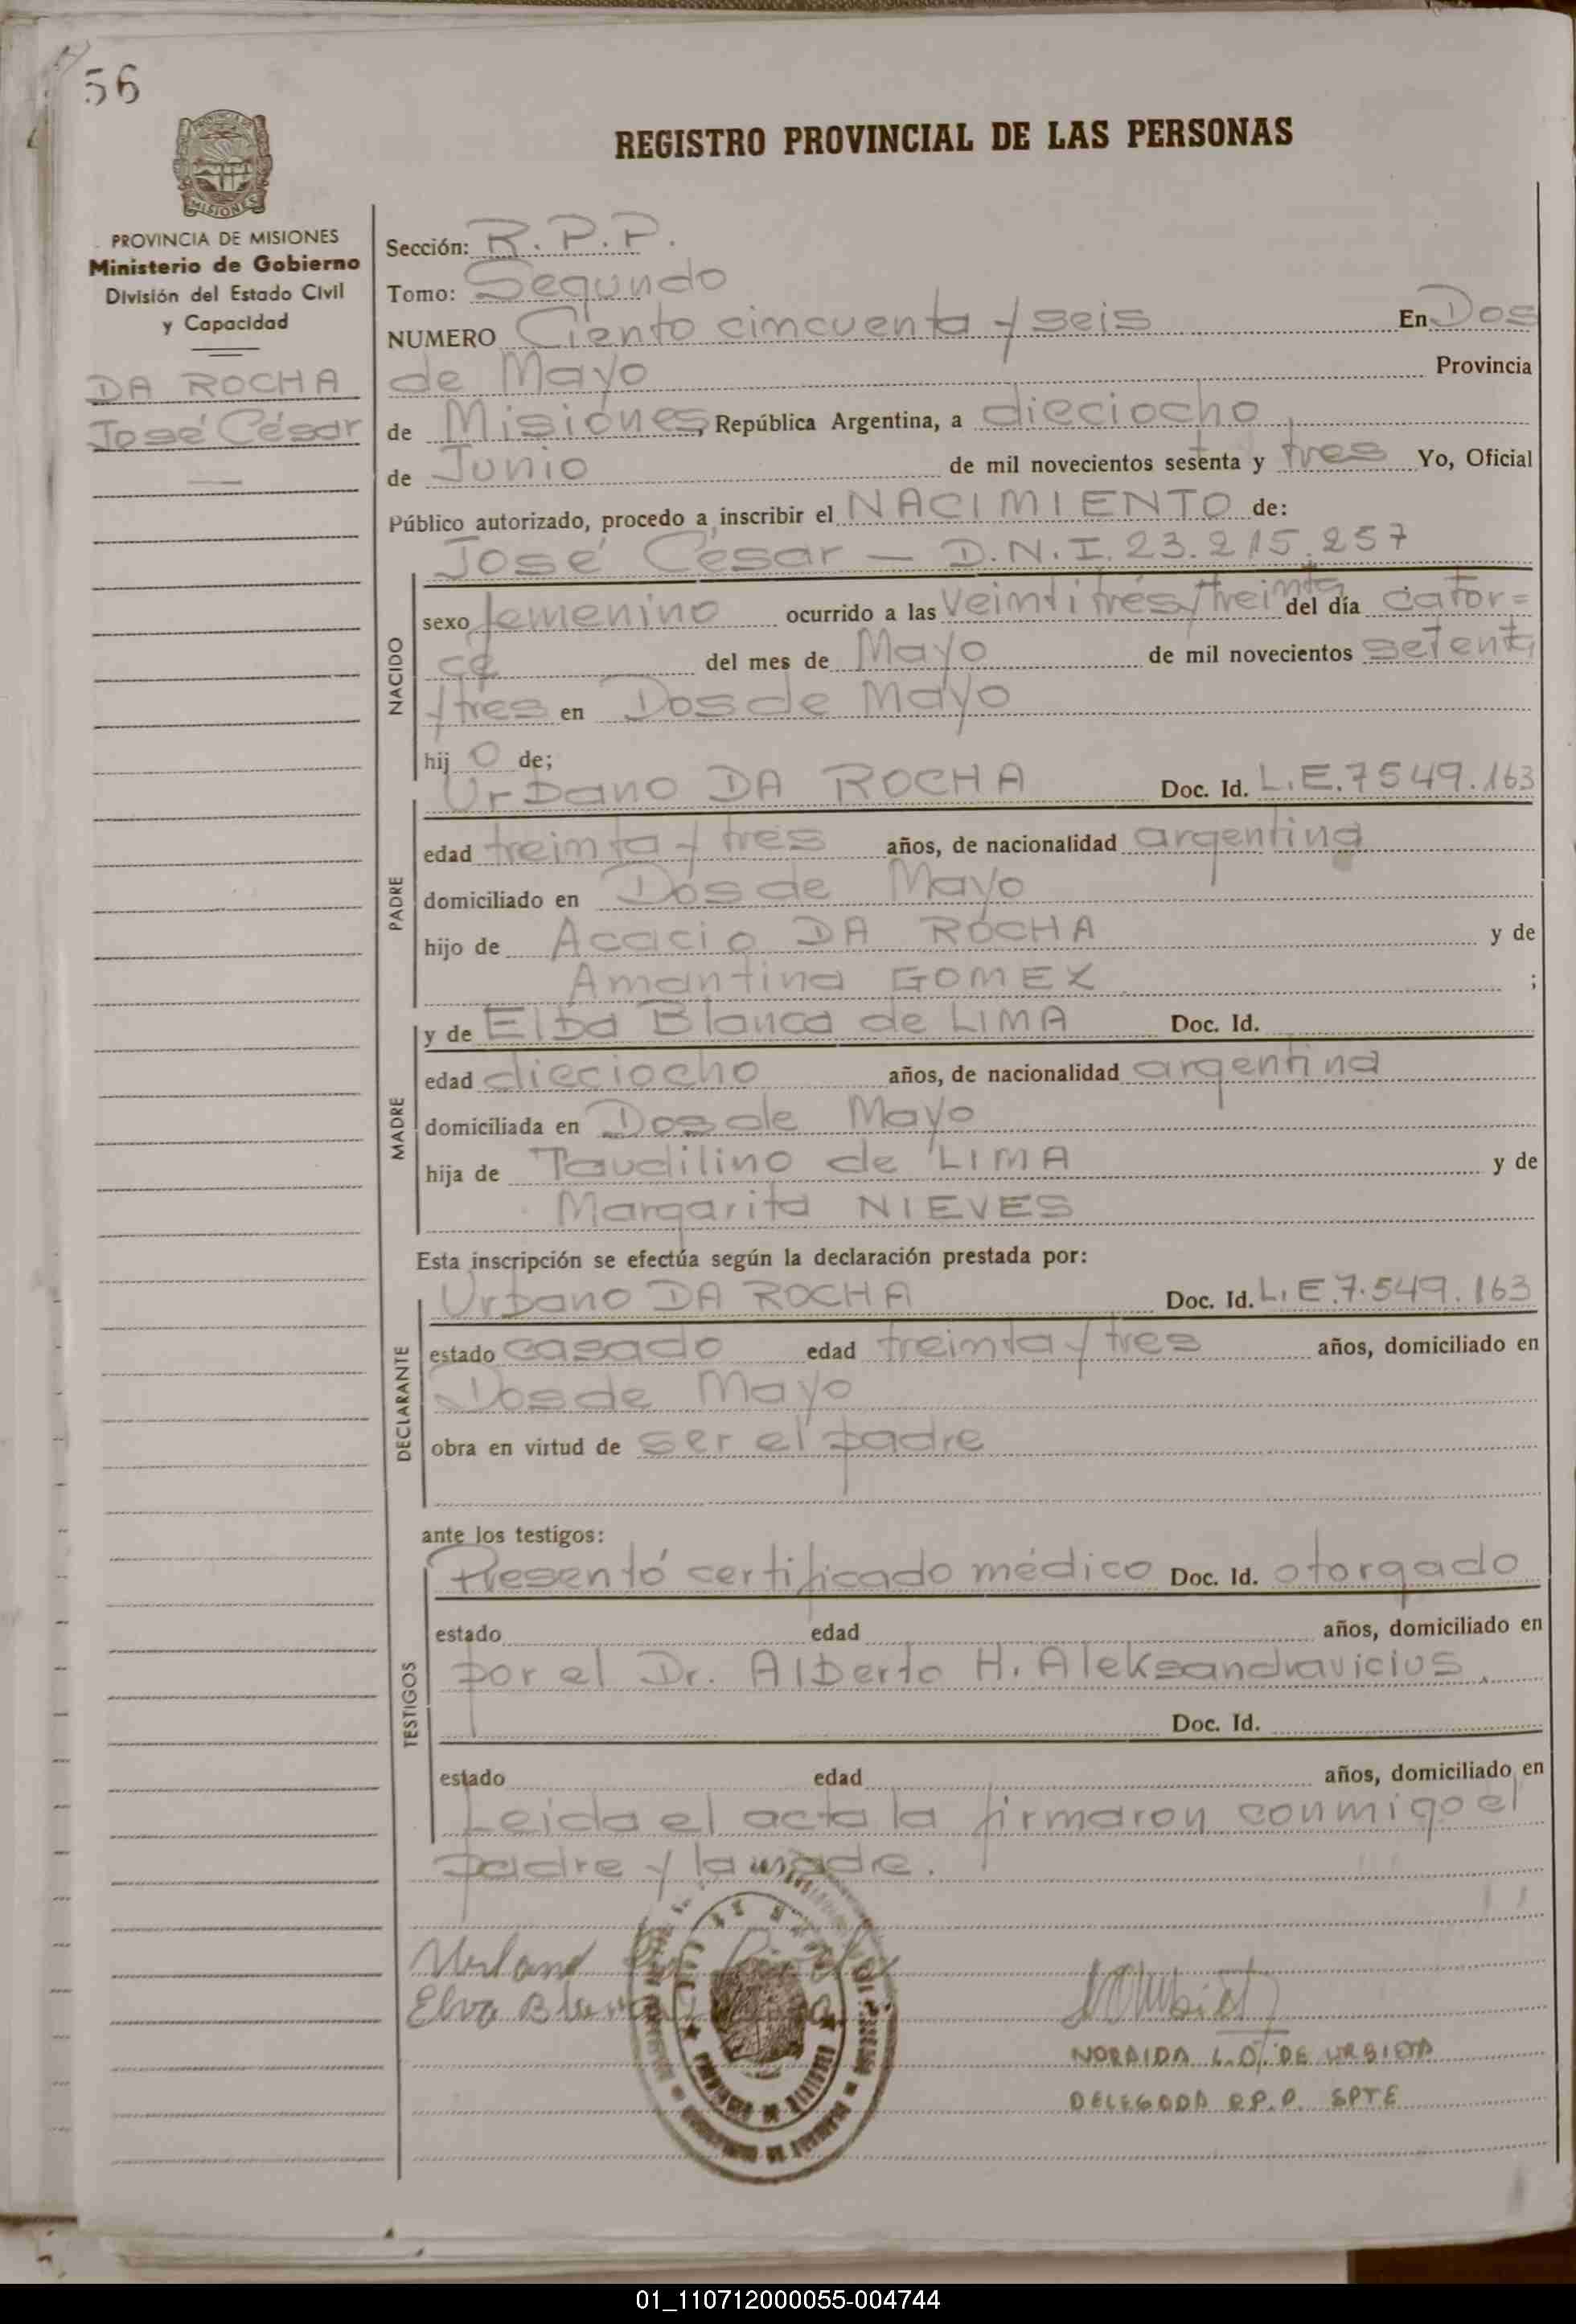 56
REGISTRO PROVINCIAL DE LAS PERSONAS
MISIONES
PROVINCIA DE MISIONES
Ministerio de Gobierno
División del Estado Civil
y Capacidad
DA ROCHA
José César
Sección: R.P.P.
Tomo: Segundo
NUMERO Ciento cincuenta y seis En Dos
de Mayo Provincia
de Misiones, República Argentina, a dieciocho
de Junio de mil novecientos sesenta y tres Yo, Oficial
Público autorizado, procedo a inscribir el NACIMIENTO de:
José César — D.N.I. 23.215.257
NACIDO
sexo femenino ocurrido a las Veintitrés y treinta del día cator=
ce del mes de Mayo de mil novecientos setenta
y tres en Dos de Mayo
hij o de;
Urbano DA ROCHA Doc. Id. L.E. 7549.163
PADRE
edad treinta y tres años, de nacionalidad argentina
domiciliado en Dos de Mayo
hijo de Acacio DA ROCHA y de
Amantina GOMEZ ;
MADRE
y de Elba Blanca de LIMA Doc. Id.
edad dieciocho años, de nacionalidad argentina
domiciliada en Dos de Mayo
hija de Taudilino de LIMA y de
Margarita NIEVES
Esta inscripción se efectúa según la declaración prestada por:
DECLARANTE
Urbano DA ROCHA Doc. Id. L.E. 7.549.163
estado casado edad treinta y tres años, domiciliado en
Dos de Mayo
obra en virtud de ser el padre
ante los testigos:
TESTIGOS
Presentó certificado médico Doc. Id. otorgado
estado edad años, domiciliado en
por el Dr. Alberto H. Aleksandravicius.
Doc. Id.
estado edad años, domiciliado en
Leida el acta la firmaron conmigo el
padre y la madre.
Elva Blanca
NORAIDA L.O. DE URBIETA
DELEGADA R.P.P. SPTE
01_110712000055-004744